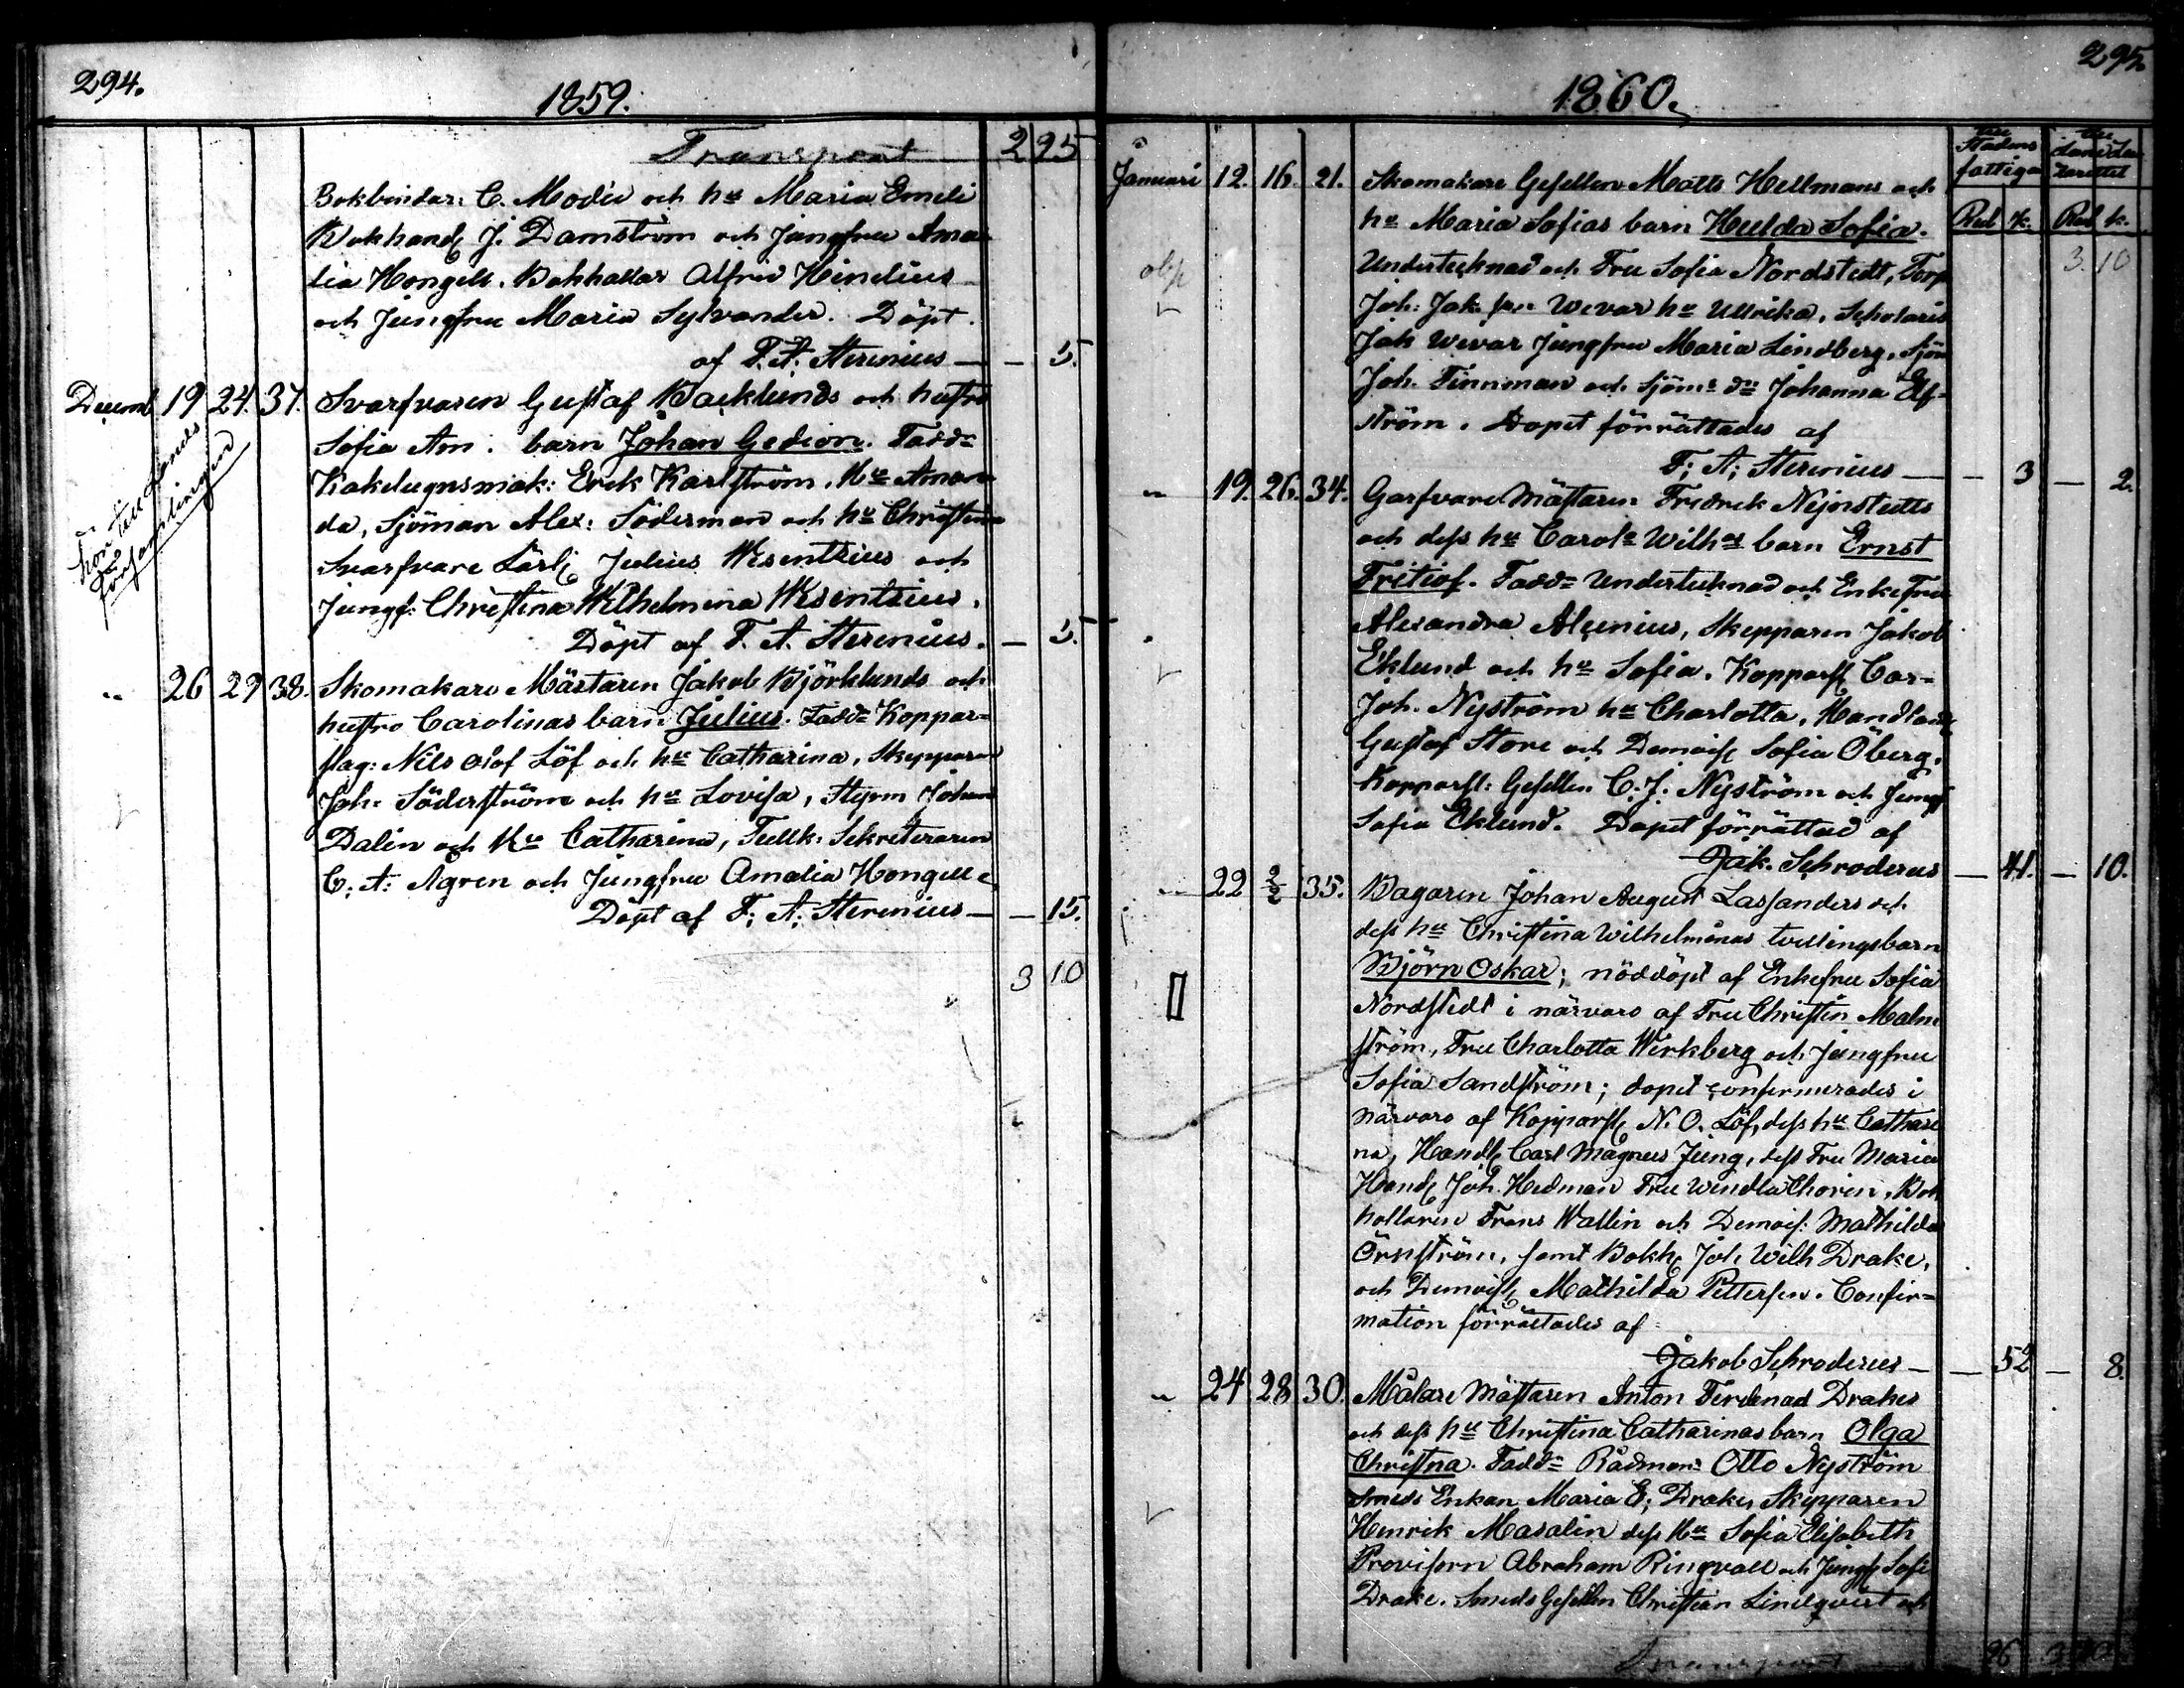 294.
1859.
Transport 2 95
Bokbindar: C. Modée och hu Maria Emeli
Bokhandl J. Damström och Jungfru Ama
lia Hongell. Bokhållar Alfred Hinelius
och Jungfru Maria Sylvander. Döpt.
af F. A. Sterenius — — 5.
Decemb 19 24. 37. Svarfvaren Gustaf Backlunds och hustro
Sofia Am. barn Johan Gedion. Fadd:
Kakelugnsmak: Erek Karlström, Hu Aman
da, Sjöman Alex: Söderman och hu Christina
Svarfvare Lärl Julius Wesentsius och
Jungf: Christina Wilhelmina Wesentsius.
Döpt af F. A. Sterenius. — 5.
hör till Lands
församlingen
" 26 29 38. Skomakare Mästaren Jakob Björklunds och
hustro Carolinas barn Julius. Fadd: Koppar=
slag: Nils Olof Löf och hu Catharina, Skepparen
Joh: Söderström och hu Lovisa, Styrm Johan
Dalin och Hu Catharina, Tullk: Sekreteraren
C. A: Ågren och Jungfru Amalia Hongell
Döpt af F; A; Sterenius — — 15.
3 10
295.
1860.
till Stadens fattiga
till
Rub k. Rub k.
3. 10
Januari 12. 16. 21. Skomakare Gesellen Matts Hellmans och
hu Maria Sofias barn Hulda Sofia.
Undertecknad och Fru Sofia Nordstedt, Torp
Joh: Jak: son Wevar hu Ullrika, Scholaris
Jak Wevar Jungfru Maria Lindberg, Sjöm
Joh. Finnman och Sjöm: dr Johanna Elf=
ström. Dopet förrättades af
F; A; Sterenius — — 3 — 2.
" 19. 26. 34. Garfvare Mästaren Fredrek Nejonstedts
och dess hu Carola Wilhas barn Ernst
Fritiof. Fadd: Undertecknad och Enkefru
Alexandra Alcenius, Skepparen Jakob
Eklund och hu Sofia. Kopparsl Car=
Joh. Nyström hu Charlotta, Handland
Gustaf Store och Demoisl Sofia Öberg.
Kopparsl: Gesellen C. J. Nyström och Jungf
Sofia Eklund. Dopet förrättad af
Jak. Schroderus — 41. — 10.
" 22 2/2 35. Bagaren Johan August Lassanders och
dess hu Christina Wilhelminas tvillingsbarn
Björn Oskar; nöddöpt af Enkefru Sofia
Nordstedt i närvaro af Fru Christin Malm
ström, Fru Charlotta Wirkberg och Jungfru
Sofia Sandström; dopet confirmerades i
närvaro af Kopparsl N. O. Löf, dess hu Cathari
na, Handl Carl Magnus Jung, dess Fru Maria
Handl Joh. Hedman Fru Wendla Thoren, Bok
hållaren Frans Wallin och Demois: Mathilda
Örnström, samt Bokh Joh. Wilh Drake,
och Demoisl Mathilda Petterson. Confir=
mation förrättades af
Jakob Schroderus — — 52 — 8.
" 24 28 30. Målare Mästaren Anton Ferdenad Drakes
och dess hu Christina Catharinas barn Olga
Christna. Fadd: Rådman: Otto Nyström
Smeds Enkan Maria E; Drake, Skepparen
Henrik Masalin dess Hu Sofia Elisabeth
Provisorn Abraham Ringvall och Jungf Sofi
Drake. Smeds Gesellen Christian Lindqvist och
Transport 96